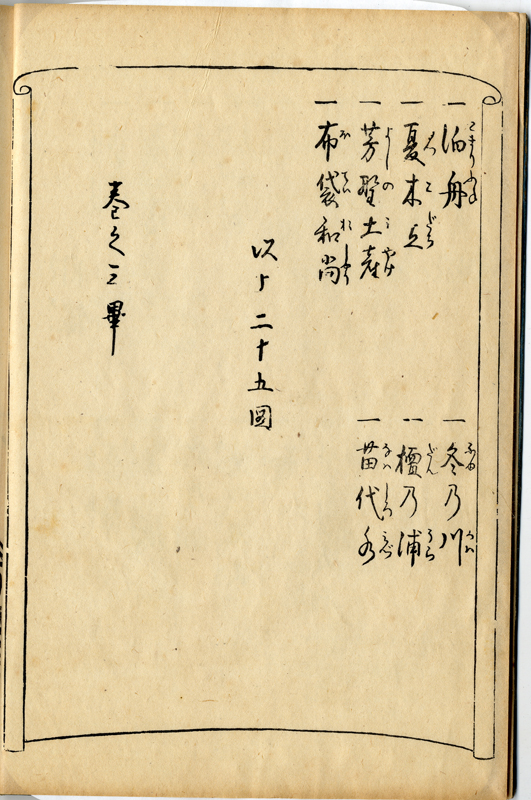 一 泊舟
一 夏木立
一 芳野土産
一 布袋和尚
一 冬乃川
一 檀乃浦
一 苗代水
以上二十五図
巻之三畢